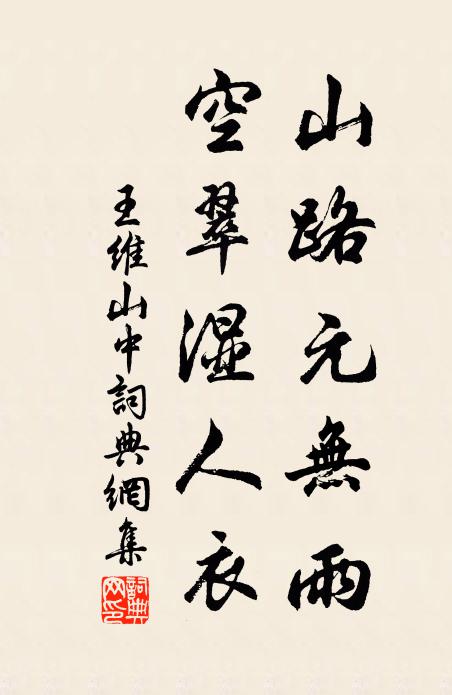 山路元無雨
空翠湿人衣
王維山中詞典網集
詞典网印